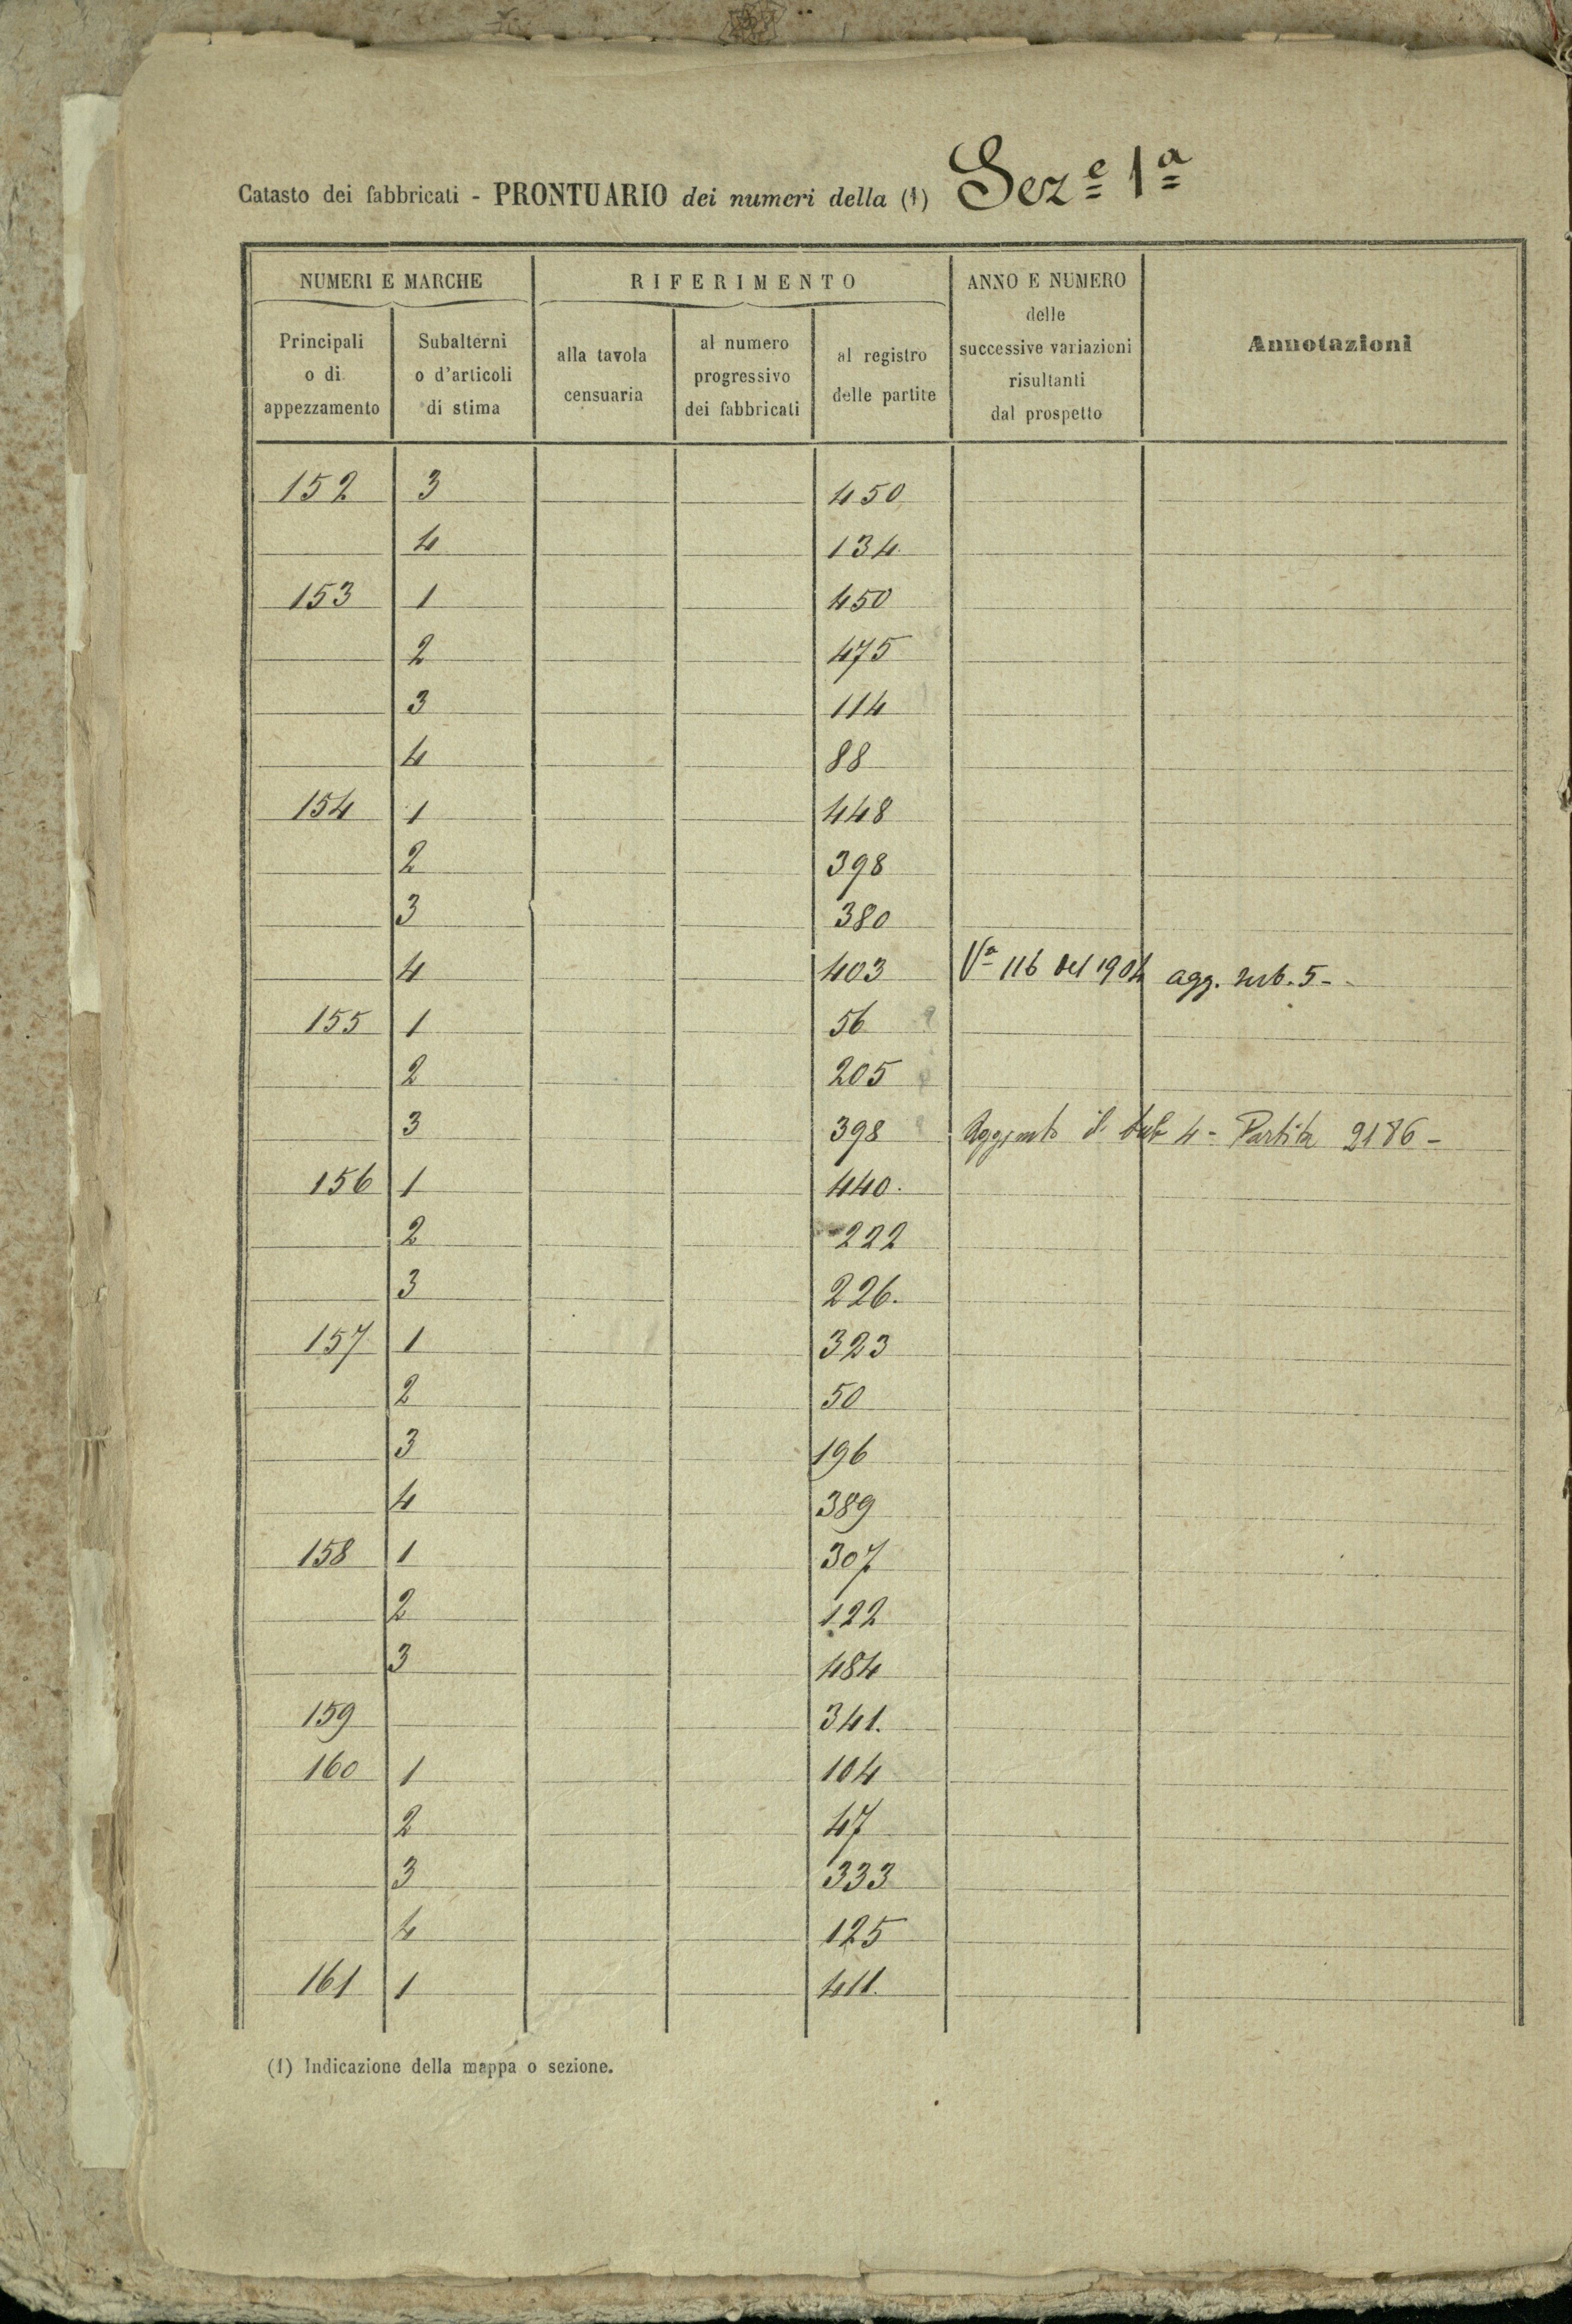 Catasto dei fabbricati - PRONTUARIO dei numeri della (1) Sez.e 1a
NUMERI E MARCHE
RIFERIMENTO
ANNO E NUMERO
delle
successive variazioni
risultanti
dal prospetto
Annotazioni
Principali
o di
appezzamento
Subalterni
o d'articoli
di stima
alla tavola
censuaria
al numero
progressivo
dei fabbricati
al registro
delle partite
152 3 450
4 134
153 1 450
2 475
3 114
4 88
154 1 448
2 398
3 380
4 403 Va 116 del 1904 agg. sub. 5 -
155 1 56
2 205
3 398 Aggiunto il sub 4 - Partita 2186 -
156 1 440.
2 222
3 226.
157 1 323
2 50
3 196
4 389
158 1 307
2 122
3 484
159 341.
160 1 104
2 47
3 333
4 125
161 1 411.
(1) Indicazione della mappa o sezione.